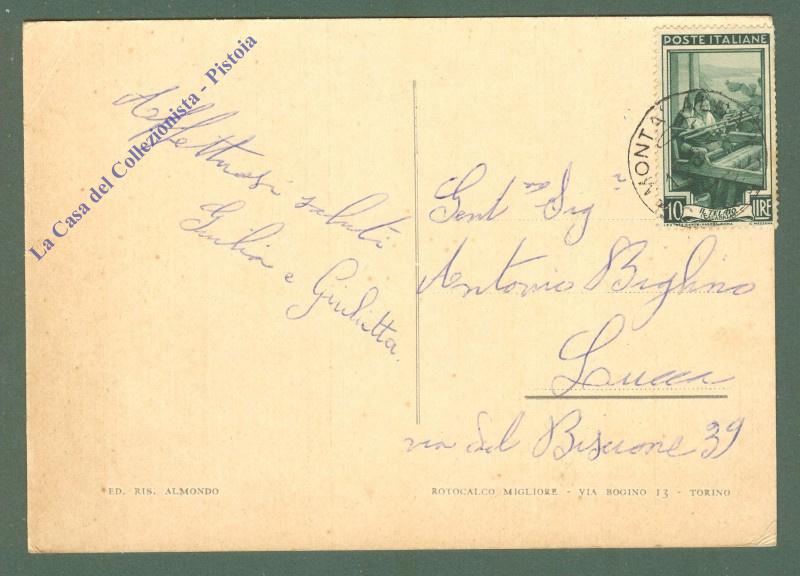 La Casa del Collezionista - Pistoia
Affettuosi saluti
Giulia e Giulietta.
POSTE ITALIANE
10 LIRE
MONTA
Gent.ma Sig.a
Antonio Biglino
Lucca
via del Biscione 39
ED. RIS. ALMONDO
ROTOCALCO MIGLIORE - VIA BOGINO 13 - TORINO